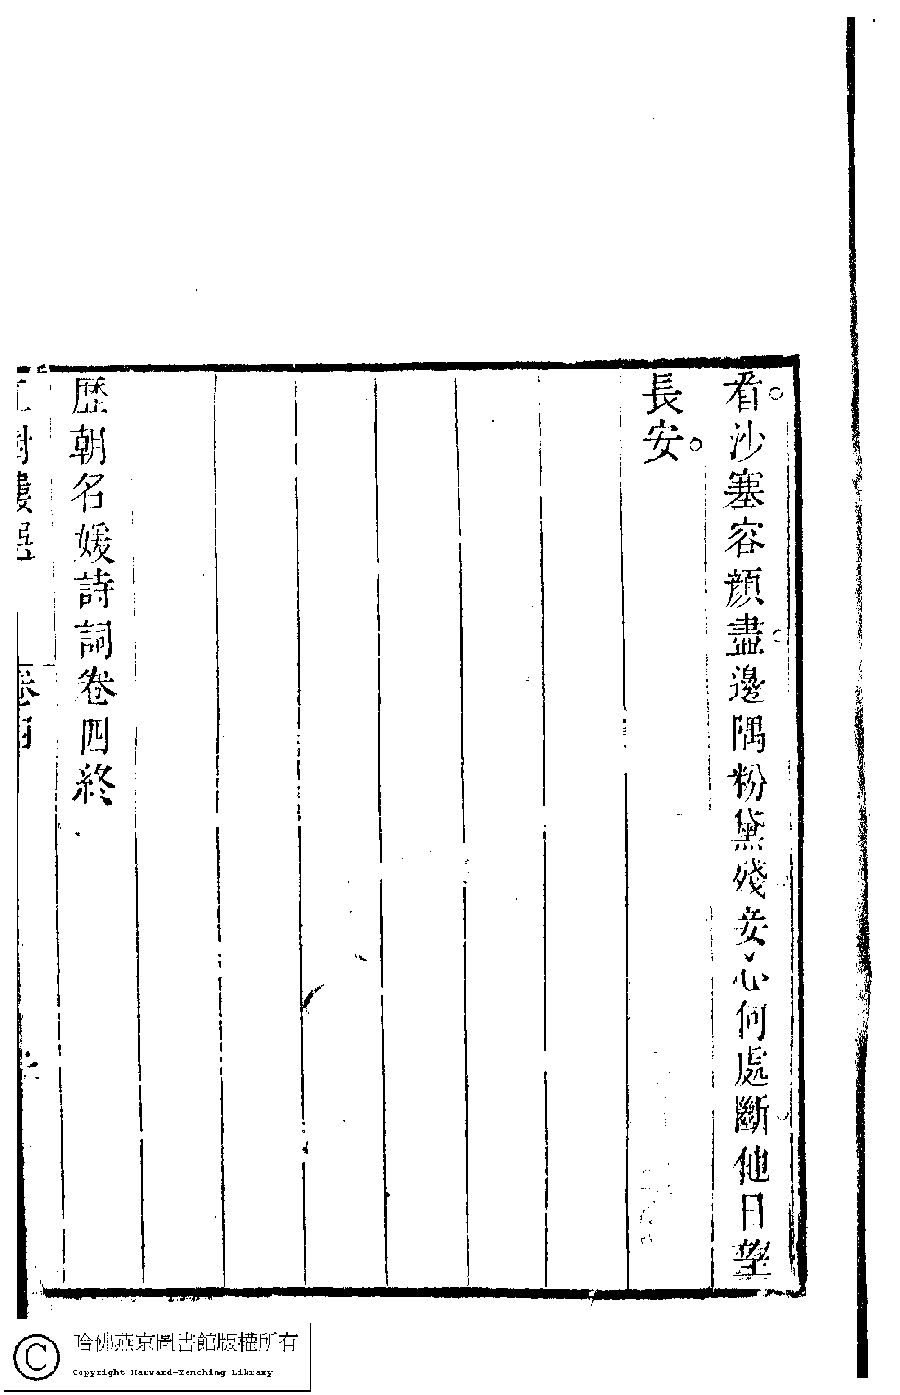 看沙塞容顔盡邊隅粉黛殘妾心何處斷他日望
長安
歷朝名媛詩詞卷四終
紅樹樓選
卷四
哈佛燕京圖書館版權所有
Copyright Harvard-Yenching Library